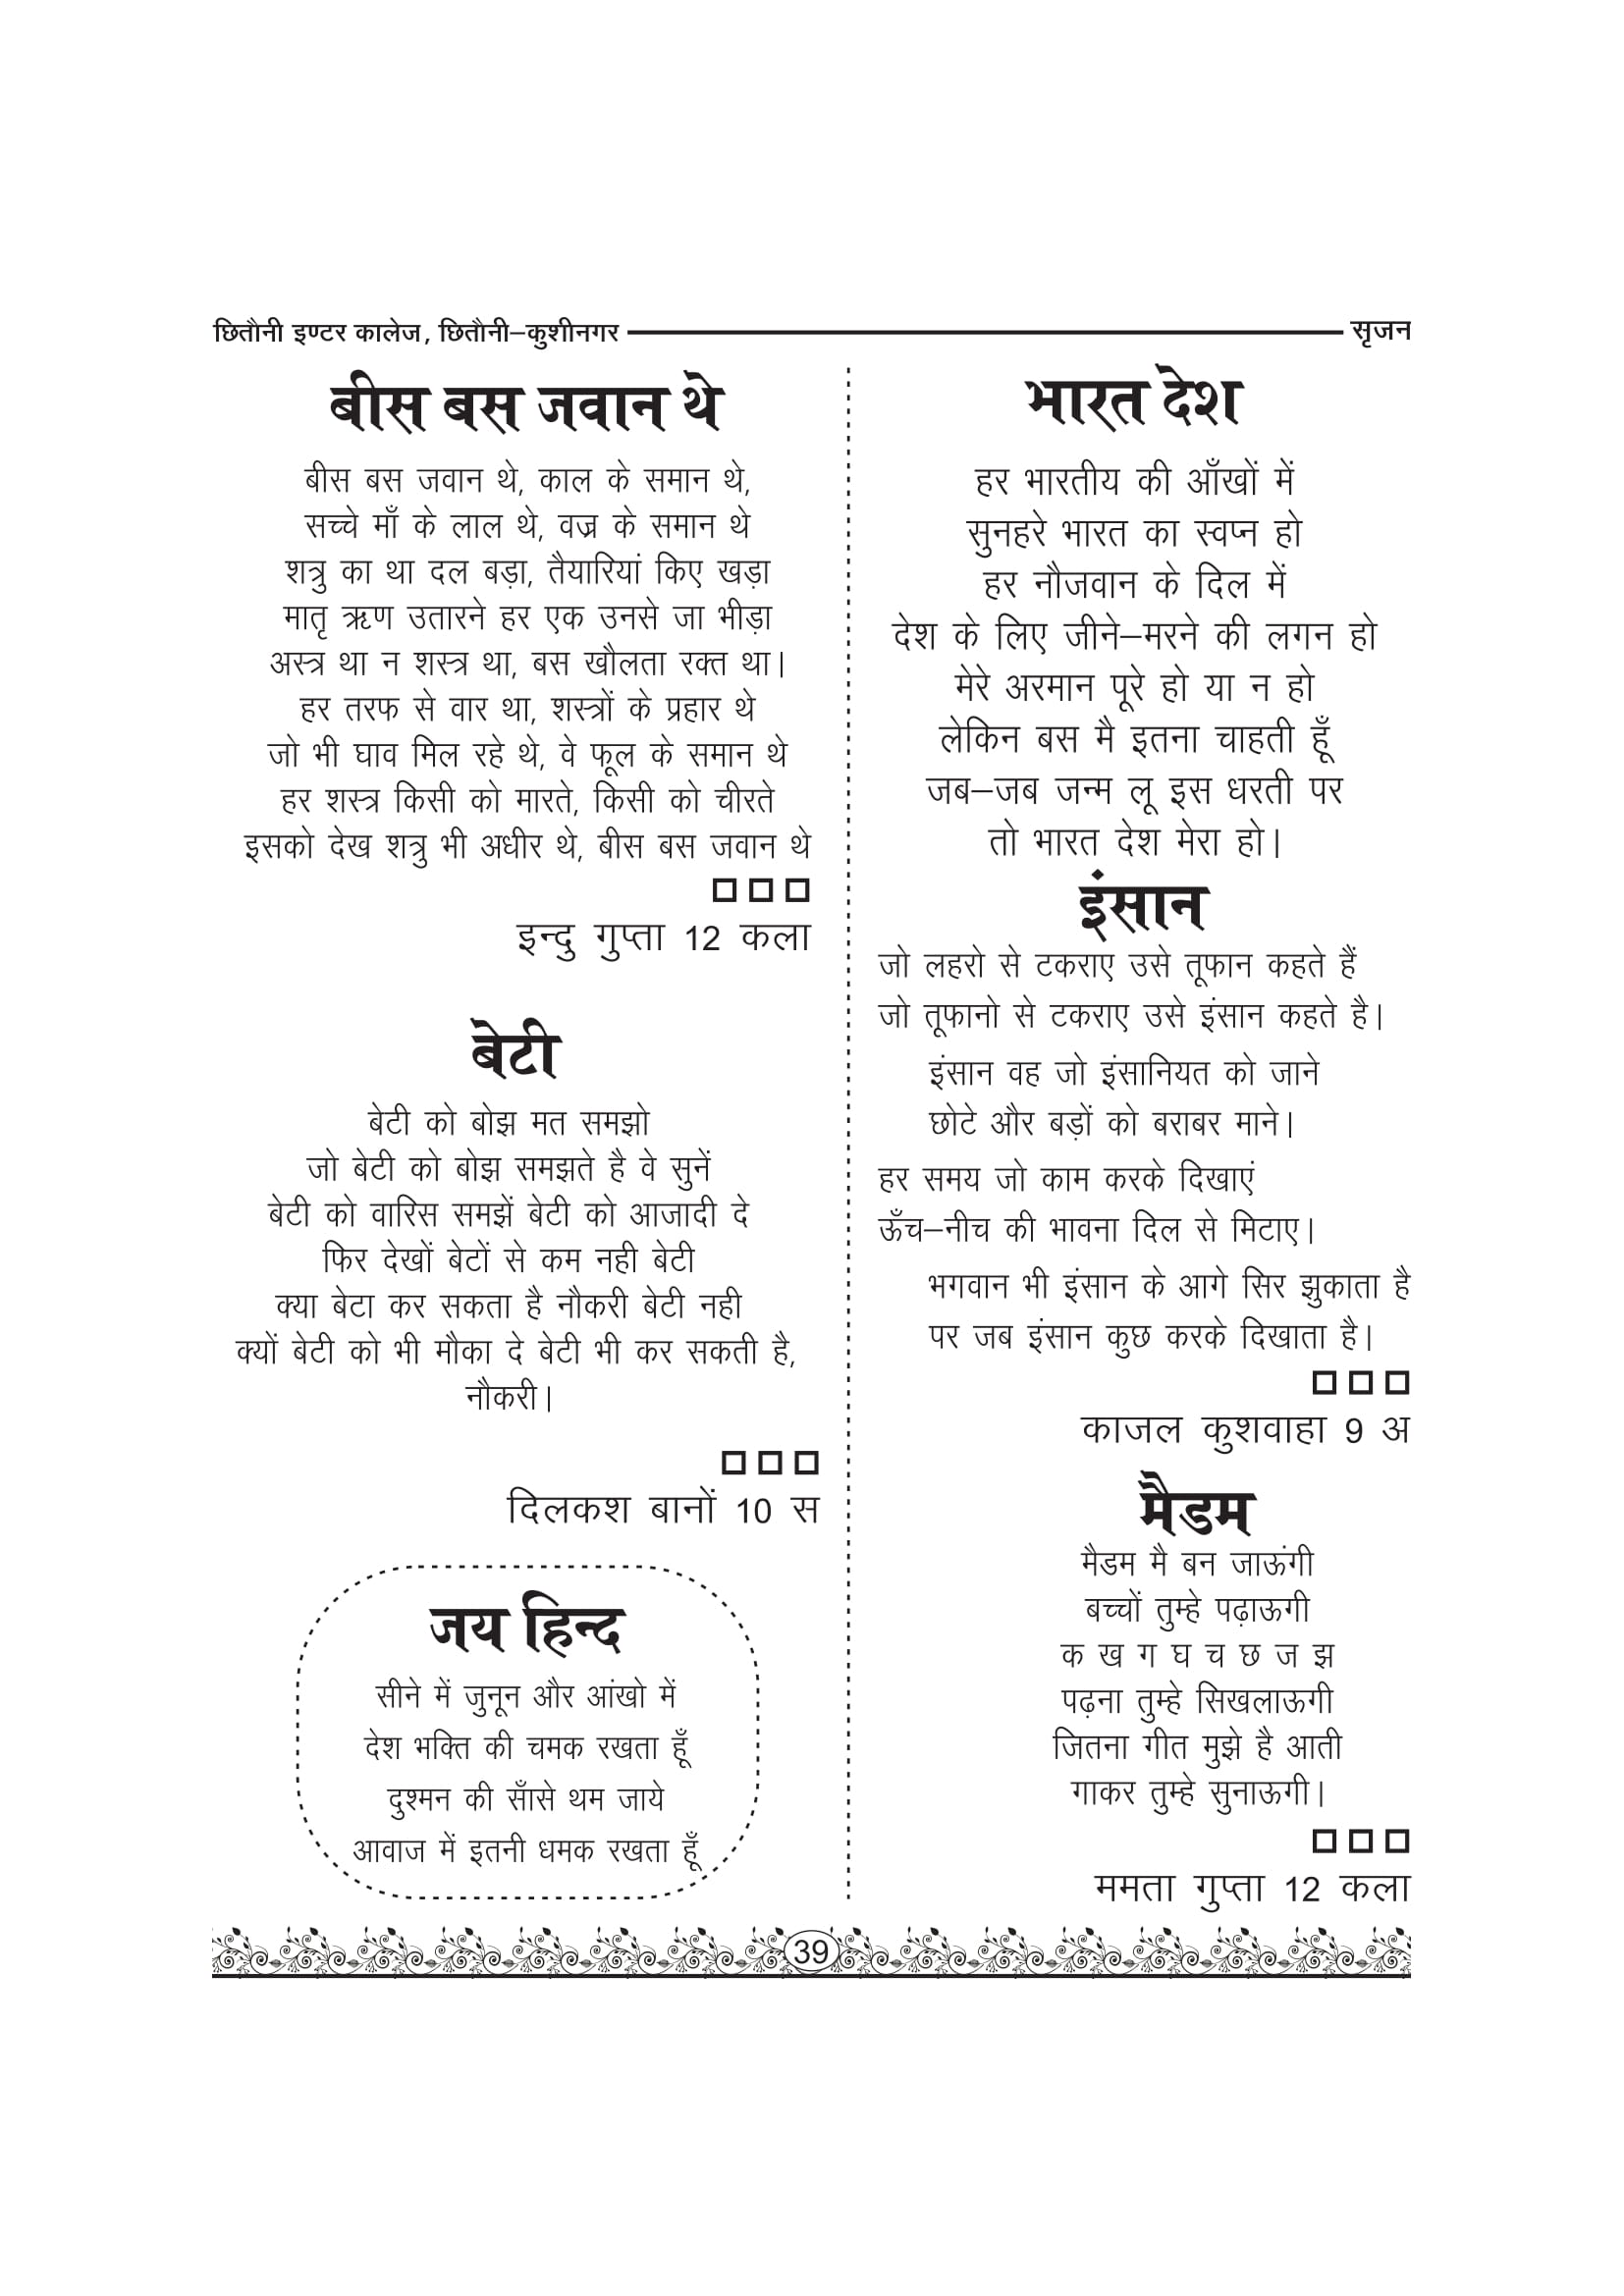 छितौनी इण्टर कालेज, छितौनी–कुशीनगर
सृजन
बीस बस जवान थे
बीस बस जवान थे, काल के समान थे,
सच्चे माँ के लाल थे, वज्र के समान थे
शत्रु का था दल बड़ा, तैयारियां किए खड़ा
मातृ ऋण उतारने हर एक उनसे जा भीड़ा
अस्त्र था न शस्त्र था, बस खौलता रक्त था।
हर तरफ से वार था, शस्त्रों के प्रहार थे
जो भी घाव मिल रहे थे, वे फूल के समान थे
हर शस्त्र किसी को मारते, किसी को चीरते
इसको देख शत्रु भी अधीर थे, बीस बस जवान थे
□□□
इन्दु गुप्ता 12 कला
बेटी
बेटी को बोझ मत समझो
जो बेटी को बोझ समझते है वे सुनें
बेटी को वारिस समझें बेटी को आजादी दे
फिर देखों बेटों से कम नही बेटी
क्या बेटा कर सकता है नौकरी बेटी नही
क्यों बेटी को भी मौका दे बेटी भी कर सकती है,
नौकरी।
□□□
दिलकश बानों 10 स
जय हिन्द
सीने में जुनून और आंखो में
देश भक्ति की चमक रखता हूँ
दुश्मन की साँसे थम जाये
आवाज में इतनी धमक रखता हूँ
भारत देश
हर भारतीय की आँखों में
सुनहरे भारत का स्वप्न हो
हर नौजवान के दिल में
देश के लिए जीने–मरने की लगन हो
मेरे अरमान पूरे हो या न हो
लेकिन बस मै इतना चाहती हूँ
जब–जब जन्म लू इस धरती पर
तो भारत देश मेरा हो।
इंसान
जो लहरो से टकराए उसे तूफान कहते हैं
जो तूफानो से टकराए उसे इंसान कहते है।
इंसान वह जो इंसानियत को जाने
छोटे और बड़ों को बराबर माने।
हर समय जो काम करके दिखाएं
ऊँच–नीच की भावना दिल से मिटाए।
भगवान भी इंसान के आगे सिर झुकाता है
पर जब इंसान कुछ करके दिखाता है।
□□□
काजल कुशवाहा 9 अ
मैडम
मैडम मै बन जाऊंगी
बच्चों तुम्हे पढ़ाऊगी
क ख ग घ च छ ज झ
पढ़ना तुम्हे सिखलाऊगी
जितना गीत मुझे है आती
गाकर तुम्हे सुनाऊगी।
□□□
ममता गुप्ता 12 कला
39